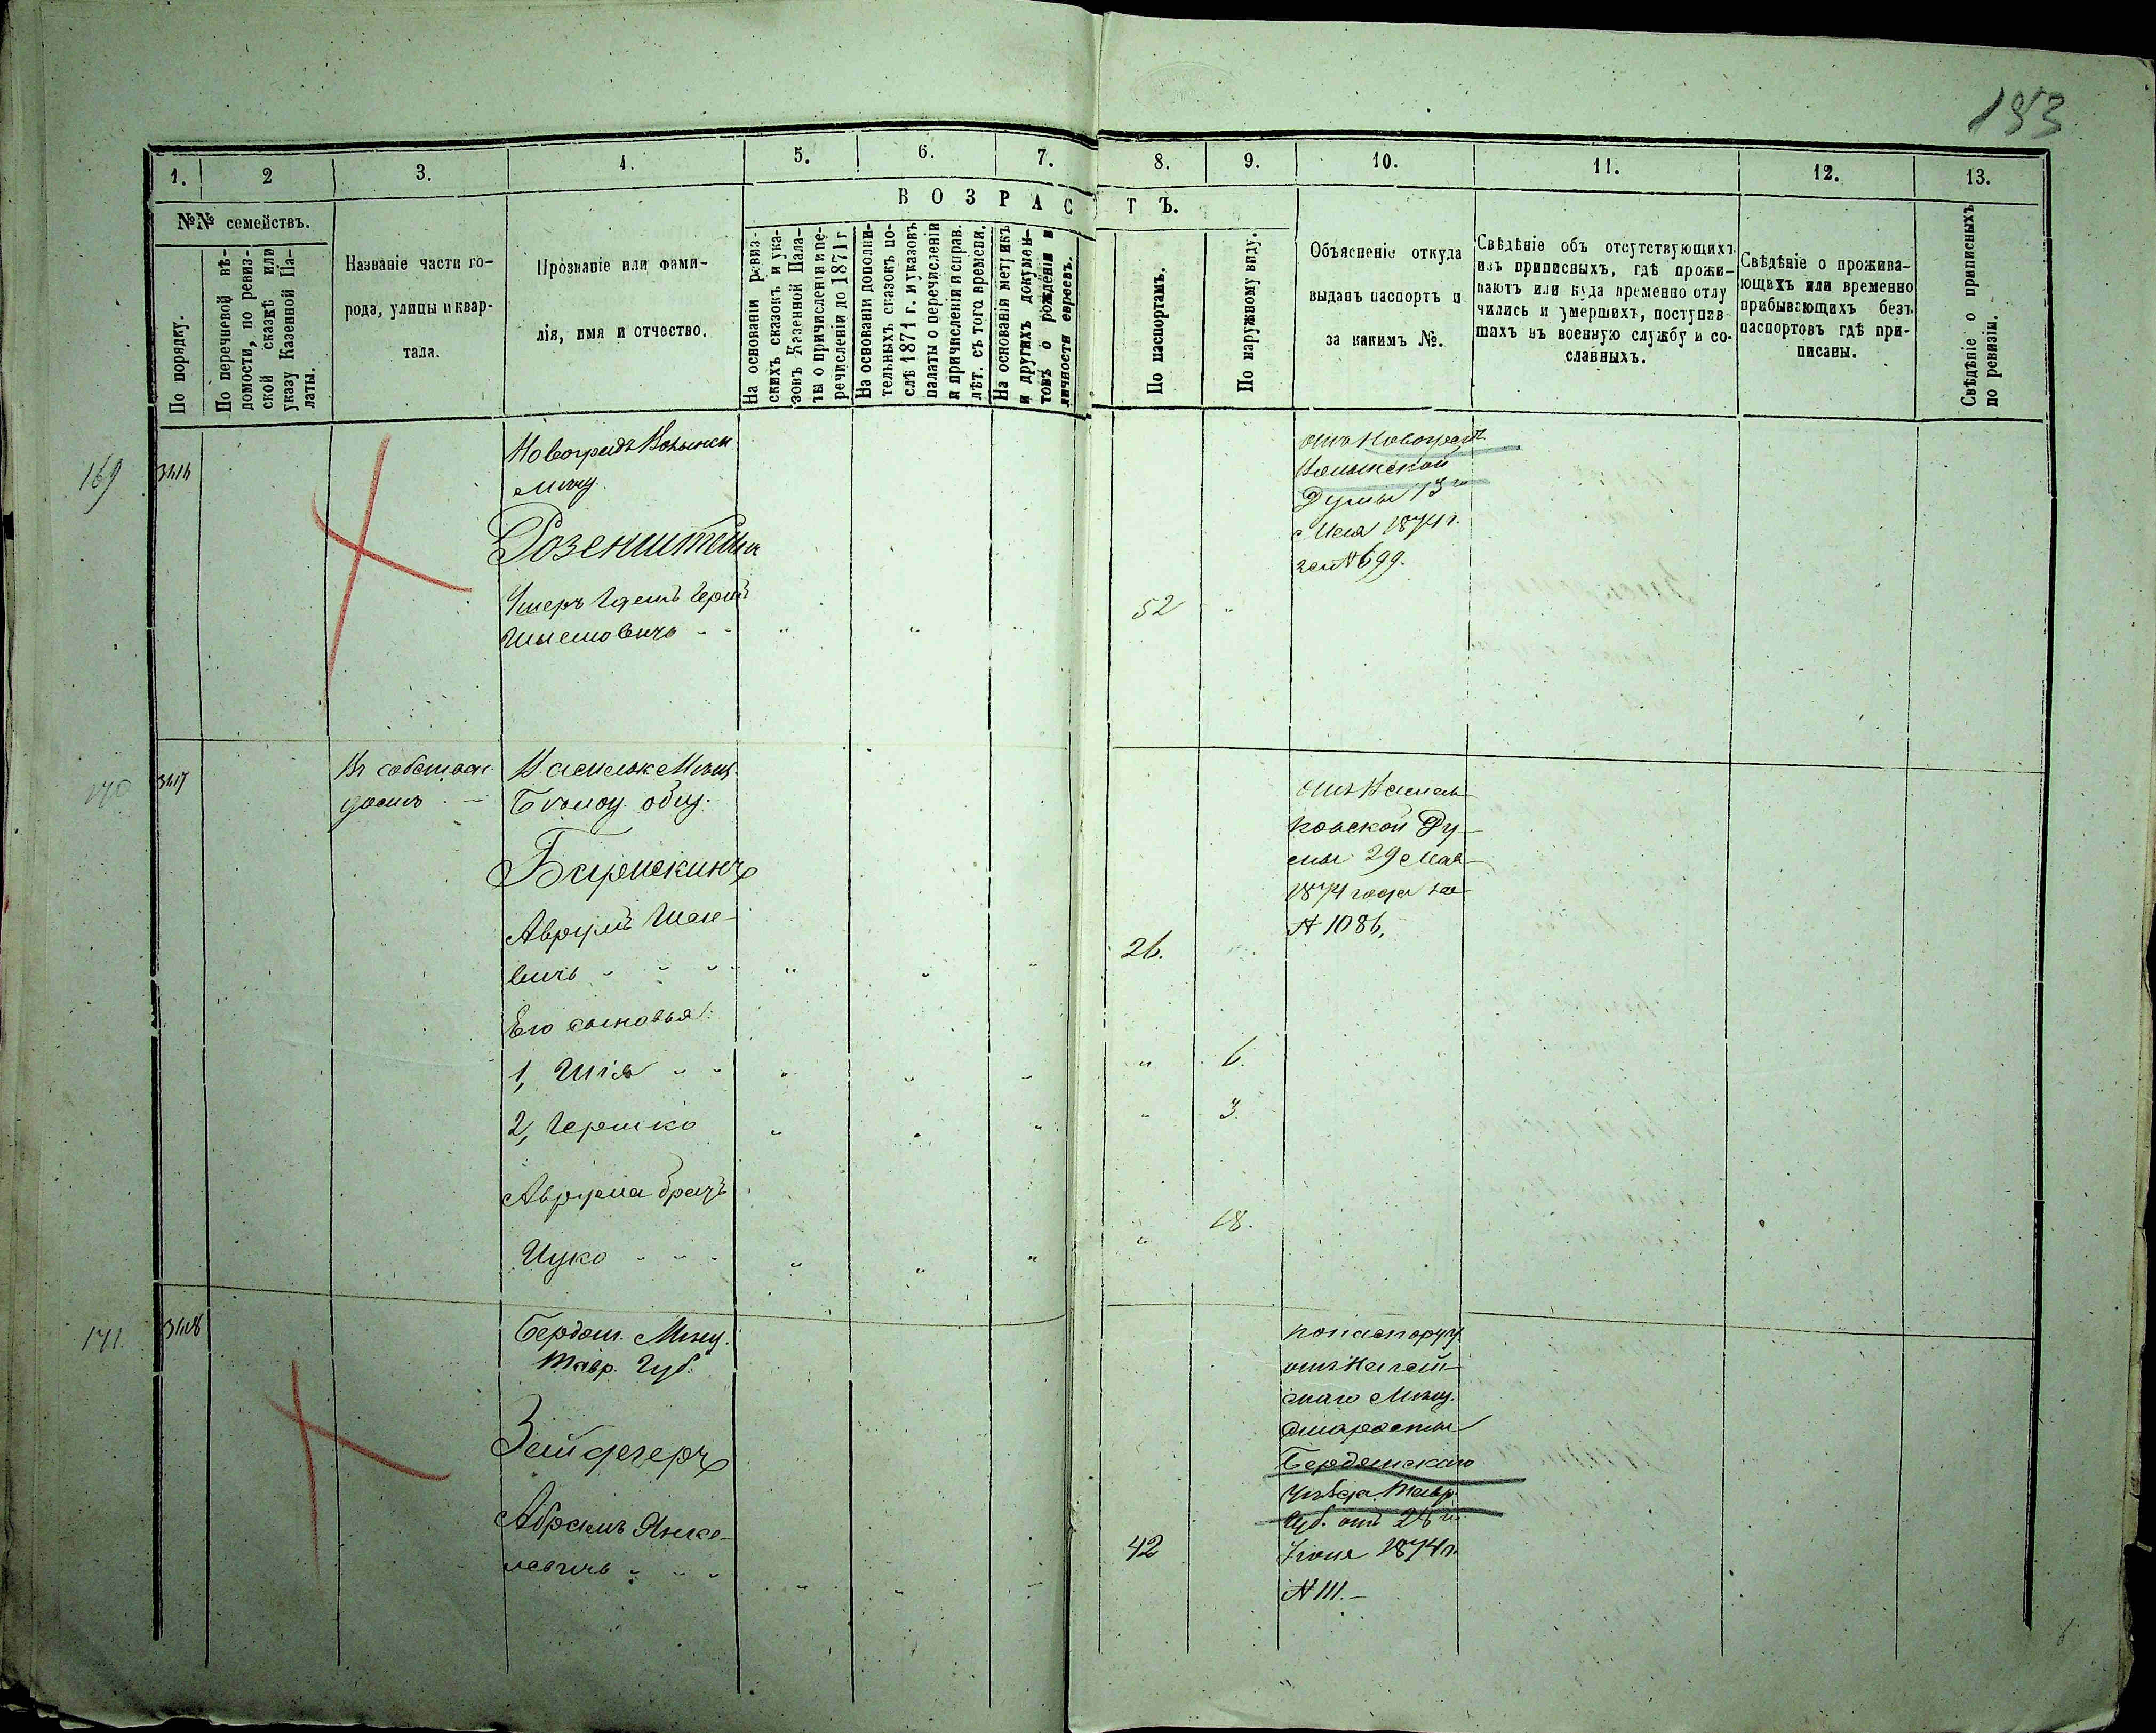 183
1.
2
3.
4.
5.
6.
7.
8.
9.
10.
11.
12.
13.
№№ семействъ.
По порядку.
По перечневой вѣ-
домости, по ревиз-
ской сказкѣ или
указу Казенной Па-
латы.
Названіе части го-
рода, улицы и квар-
тала.
Прозваніе или фами-
лія, имя и отчество.
ВОЗРАСТЪ.
На основаніи ревиз-
скихъ сказокъ и ука-
зовъ Казенной Пала-
ты о причисленіи и пе-
речисленіи до 1871 г
На основаніи дополни-
тельныхъ сказокъ по-
слѣ 1871 г. и указовъ
палаты о перечисленіи
и причисленіи и справ.
лѣт. съ того времени.
На основаніи метрикъ
и другихъ докумен-
товъ о рожденіи и
личности евреевъ.
По паспортамъ.
По наружному виду.
Объясненіе откуда
выданъ паспортъ и
за какимъ №.
Свѣдѣніе объ отсутствующихъ
изъ приписныхъ, гдѣ прожи-
ваютъ или куда временно отлу
чились и умершихъ, поступав-
шихъ въ военную службу и со-
славныхъ.
Свѣдѣніе о прожива-
ющихъ или временно
прибывающихъ безъ
паспортовъ гдѣ при-
писаны.
Свѣдѣніе о приписныхъ
по ревизіи.
169
Новоградъ Волынск
мѣщ.
Розенштейнъ
52
отъ Новоградъ
Волынской
Думы 13го
Мая 1874 г.
за № 699.
170
Въ собствен
домѣ
Васильк. Мѣщ.
общ.
Аврумъ Шае-
вичъ
26.
Его сыновья:
1, Шія
6.
2, Гершко
3
Аврума братъ
Ицко
18.
отъ Василь-
ковской Ду-
мы 29 Мая
1874 года за
№ 1086,
171
Бердян. Мѣщ.
Тавр. Губ.
Абрамъ Янке-
левичъ
42
по паспорту
отъ Ногай-
скаго Мѣщ.
старосты
Бердянскаго
уѣзда Тавр.
Губ. отъ 28 го
Іюня 1874 г.
№ 111.